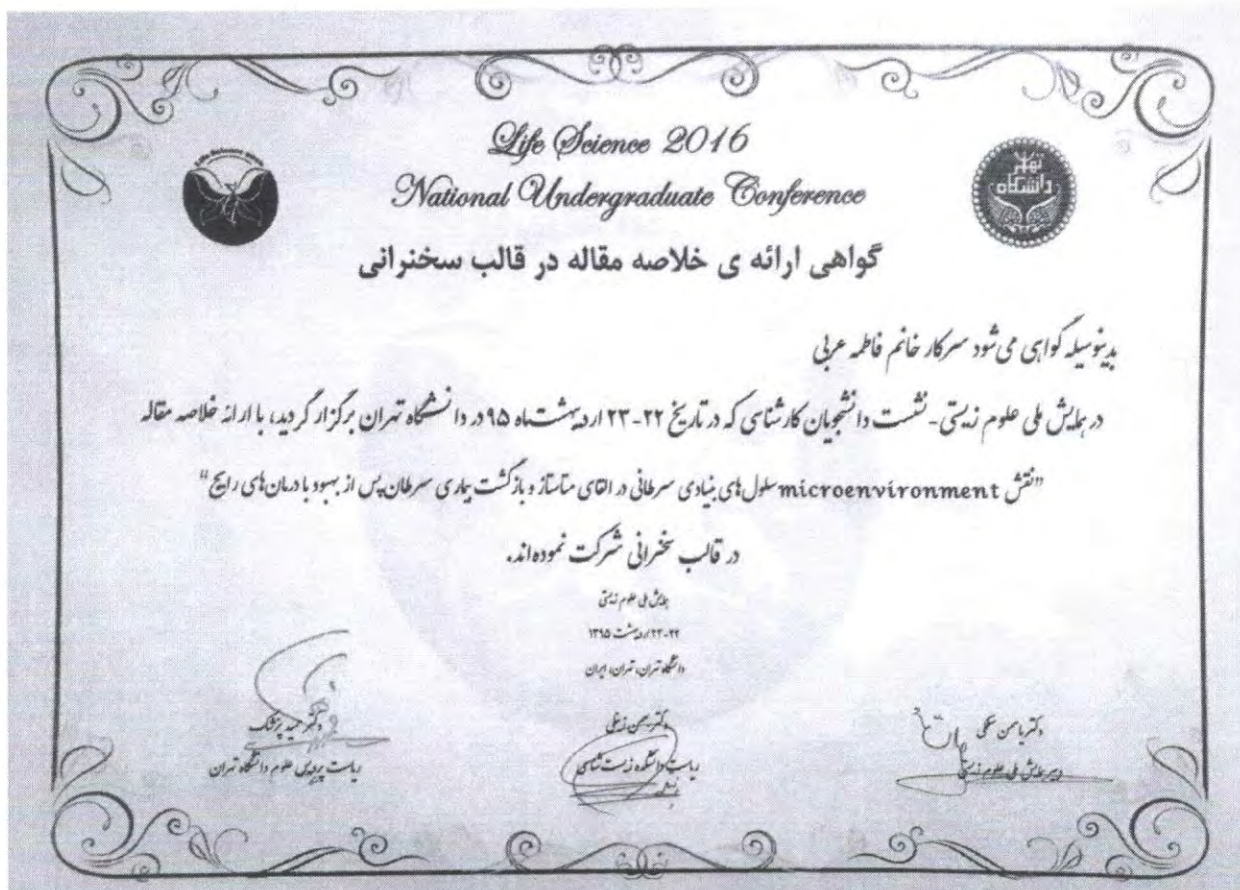 Life Science 2016
National Undergraduate Conference
دانشگاه تهران
گواهی ارائه ی خلاصه مقاله در قالب سخنرانی
بدینوسیله گواهی می شود سرکار خانم فاطمه عربی
در همایش ملی علوم زیستی - نشست دانشجویان کارشناسی که در تاریخ ۲۲-۲۳ اردیبهشت ماه ۹۵ در دانشگاه تهران برگزار گردید، با ارائه خلاصه مقاله
"نقش microenvironment سلول های بنیادی سرطانی در القای متاستاز و بازگشت بیماری سرطان پس از بهبود با درمان های رایج"
در قالب سخنرانی شرکت نموده اند.
همایش ملی علوم زیستی
۲۲-۲۳ اردیبهشت ۱۳۹۵
دانشگاه تهران، تهران، ایران
دکتر
دبیر همایش ملی علوم زیستی
دکتر بهمن زینلی
ریاست دانشکده زیست شناسی
دکتر حمید پزشک
ریاست پردیس علوم دانشگاه تهران